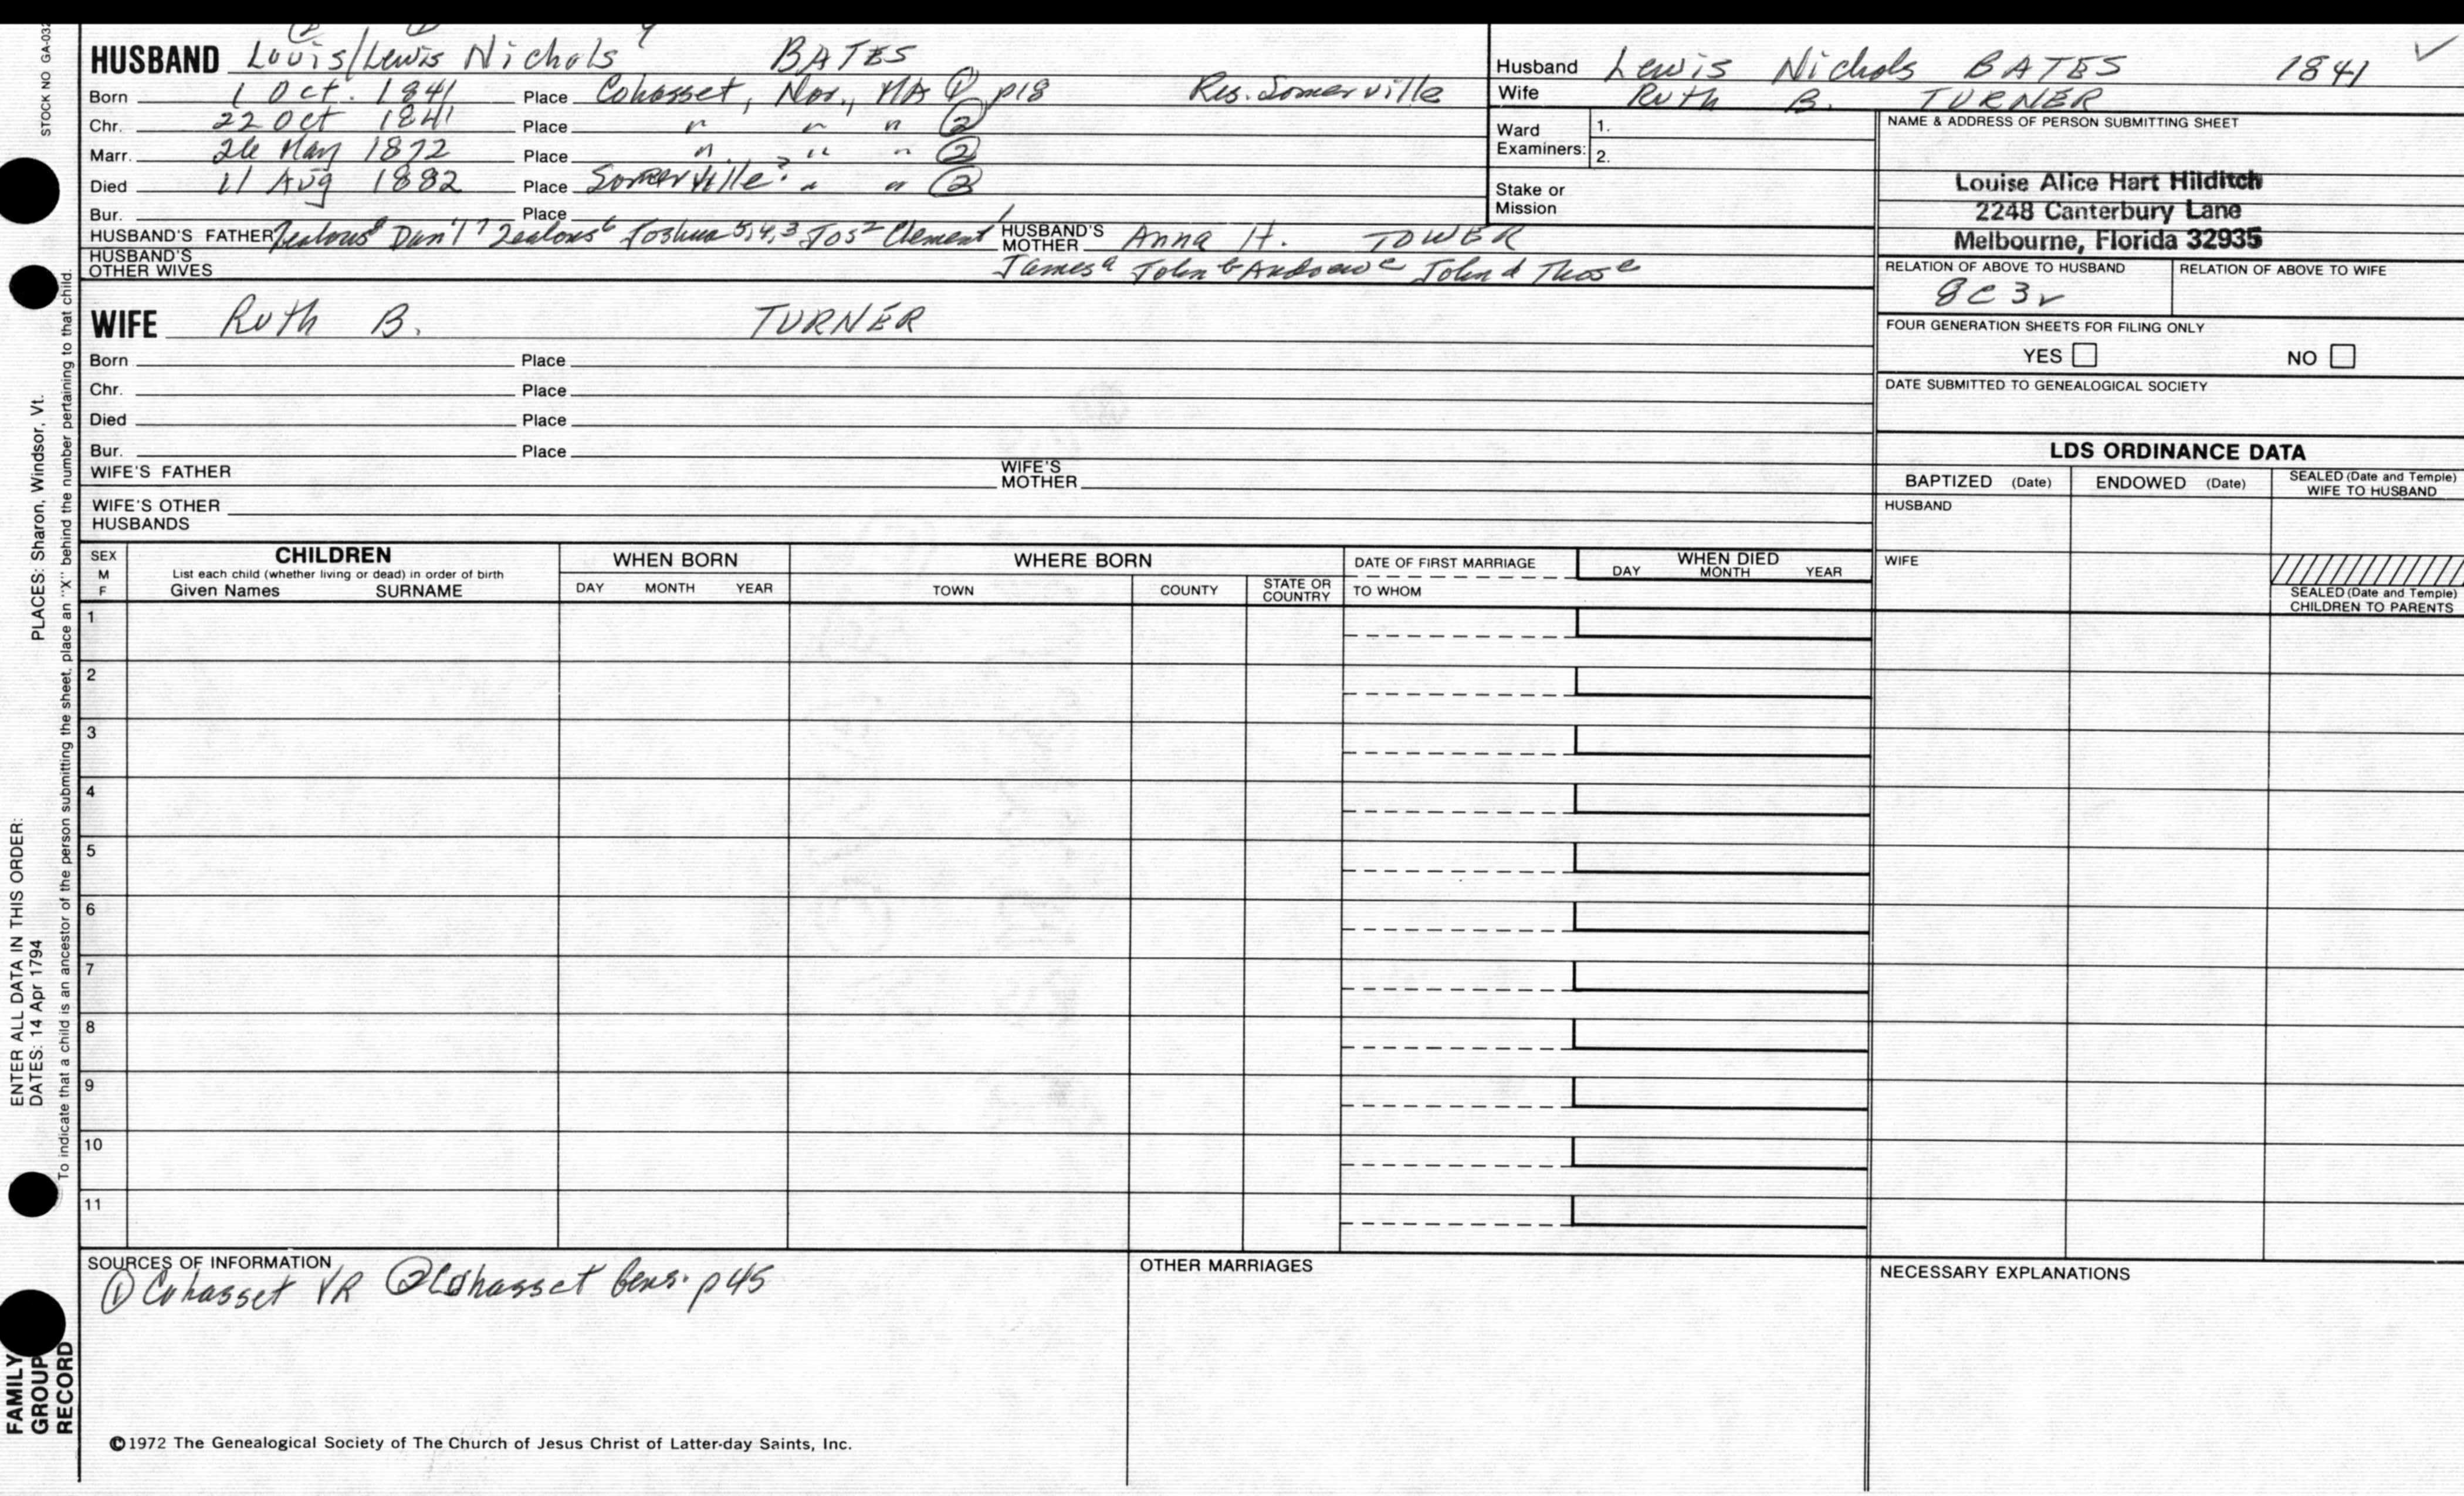 STOCK NO GA-032
HUSBAND Louis/Lewis Nichols BATES
Born 1 Oct. 1841 Place Cohasset, Nor., MA ① p18 Res. Somerville
Chr. 22 Oct 1841 Place " " " ②
Marr. 26 May 1872 Place " " " ②
Died 11 Aug 1882 Place Somerville? " " ②
Bur. Place
HUSBAND'S FATHER Zealous8 Dan'l7 Zealous6 Joshua5,4,3 Jos2 Clement1 HUSBAND'S MOTHER Anna H. TOWER
HUSBAND'S OTHER WIVES Jamesa Johnb Andrewc Johnd Those
WIFE Ruth B. TURNER
Born Place
Chr. Place
Died Place
Bur. Place
WIFE'S FATHER WIFE'S MOTHER
WIFE'S OTHER HUSBANDS
Husband Lewis Nichols BATES 1841 ✓
Wife Ruth B. TURNER
Ward Examiners: 1. 2.
Stake or Mission
NAME & ADDRESS OF PERSON SUBMITTING SHEET
Louise Alice Hart Hilditch
2248 Canterbury Lane
Melbourne, Florida 32935
RELATION OF ABOVE TO HUSBAND RELATION OF ABOVE TO WIFE
8C3r
FOUR GENERATION SHEETS FOR FILING ONLY
YES NO
DATE SUBMITTED TO GENEALOGICAL SOCIETY
LDS ORDINANCE DATA
BAPTIZED (Date) ENDOWED (Date) SEALED (Date and Temple) WIFE TO HUSBAND
HUSBAND
WIFE
SEALED (Date and Temple) CHILDREN TO PARENTS
SEX M F
CHILDREN
List each child (whether living or dead) in order of birth
Given Names SURNAME
WHEN BORN
DAY MONTH YEAR
WHERE BORN
TOWN COUNTY STATE OR COUNTRY
DATE OF FIRST MARRIAGE
TO WHOM
WHEN DIED
DAY MONTH YEAR
1
2
3
4
5
6
7
8
9
10
11
SOURCES OF INFORMATION
① Cohasset VR ② Cohasset Gens. p45
OTHER MARRIAGES
NECESSARY EXPLANATIONS
©1972 The Genealogical Society of The Church of Jesus Christ of Latter-day Saints, Inc.
PLACES: Sharon, Windsor, Vt.
ENTER ALL DATA IN THIS ORDER:
DATES: 14 Apr 1794
To indicate that a child is an ancestor of the person submitting the sheet, place an "X" behind the number pertaining to that child.
FAMILY
GROUP
RECORD